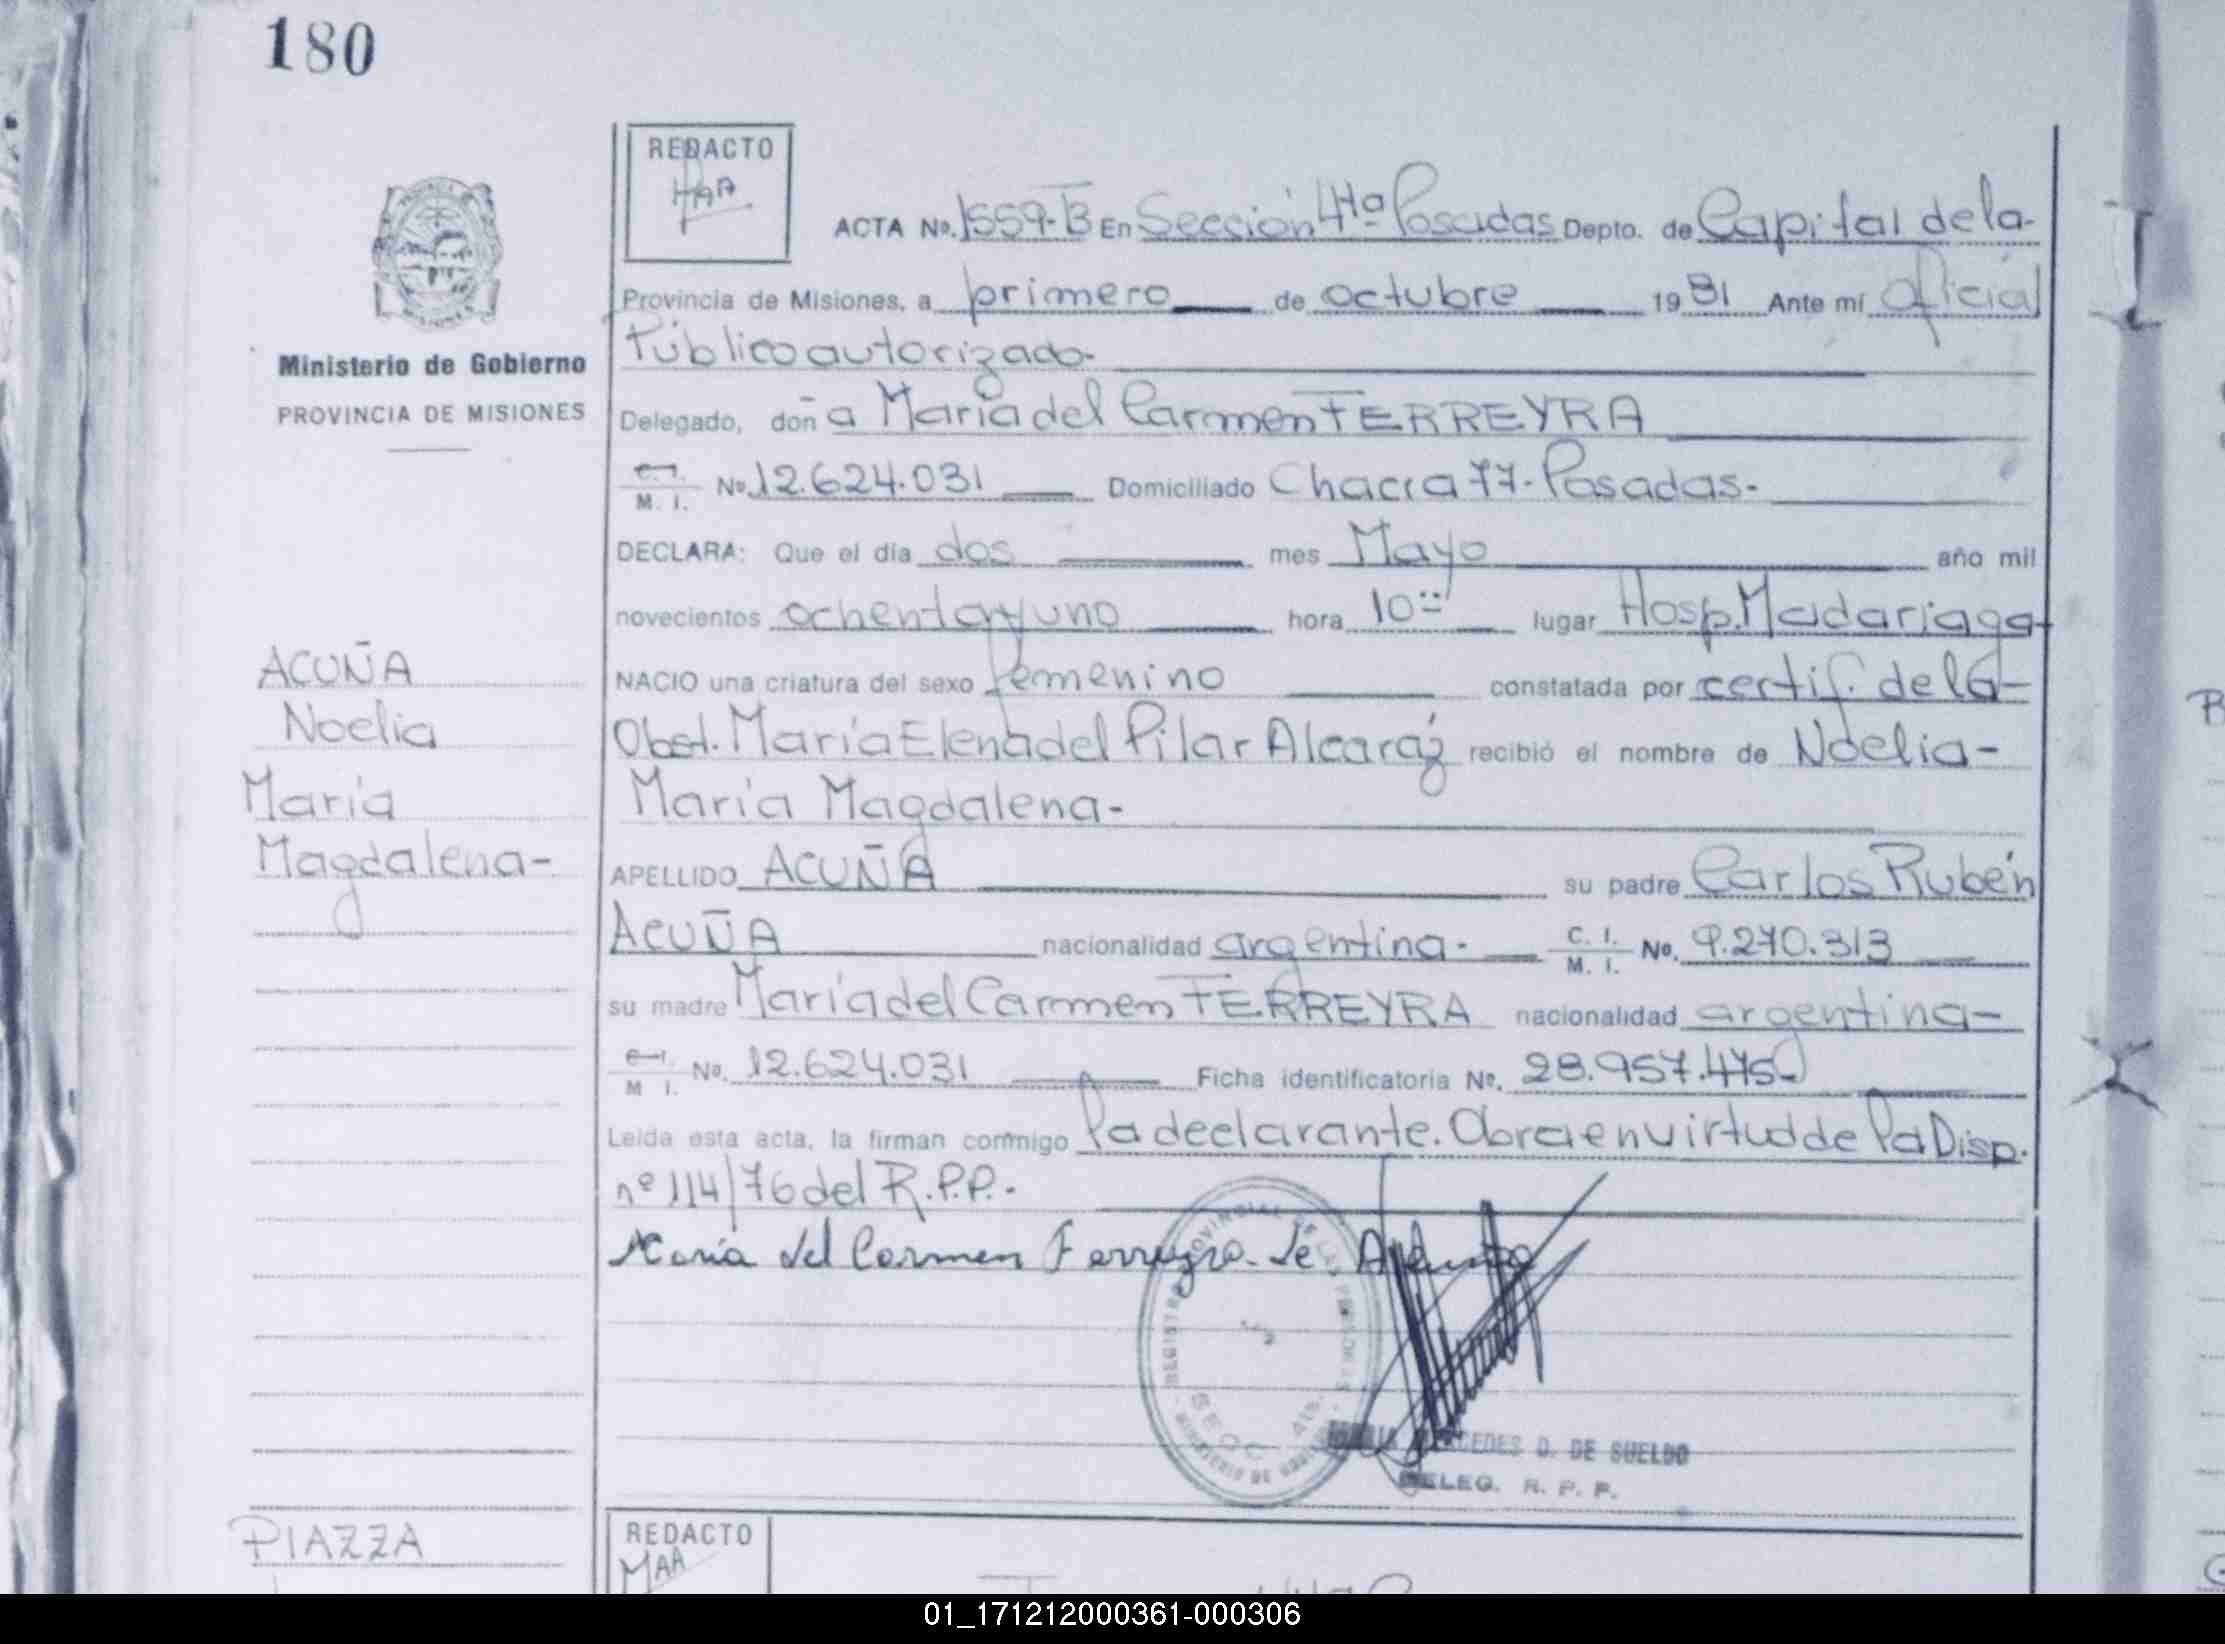 180
REDACTO
ACTA No. 1559-B En Sección 4ta Posadas Depto. de Capital de la-
Provincia de Misiones, a primero de octubre 1981 Ante mí Oficial
Público autorizado-
Ministerio de Gobierno
PROVINCIA DE MISIONES
Delegado, doña María del Carmen FERREYRA
C. I. M. I. No. 12.624.031 Domiciliado Chacra 77-Posadas-
DECLARA: Que el día dos mes Mayo año mil
novecientos ochenta y uno hora 10 lugar Hosp. Madariaga-
NACIO una criatura del sexo femenino constatada por certif. de la-
Obst. María Elena del Pilar Alcaráz recibió el nombre de Noelia-
María Magdalena-
ACUÑA
Noelia
María
Magdalena-
APELLIDO ACUÑA su padre Carlos Rubén
ACUÑA nacionalidad argentina- C. I. M. I. No. 9.270.313
su madre María del Carmen FERREYRA nacionalidad argentina-
C. I. M. I. No. 12.624.031 Ficha identificatoria No. 28.957.475-
Leída esta acta, la firman conmigo la declarante. Obra en virtud de la Disp.
nº 114/76 del R.P.P.-
María del Carmen Ferreyra de Acuña
REGISTRO PROVINCIAL DE LAS PERSONAS
MINISTERIO DE GOBIERNO
SECC. 4ta.
MERCEDES D. DE SUELDO
DELEG. R. P. P.
PIAZZA
REDACTO
MAA
01_171212000361-000306